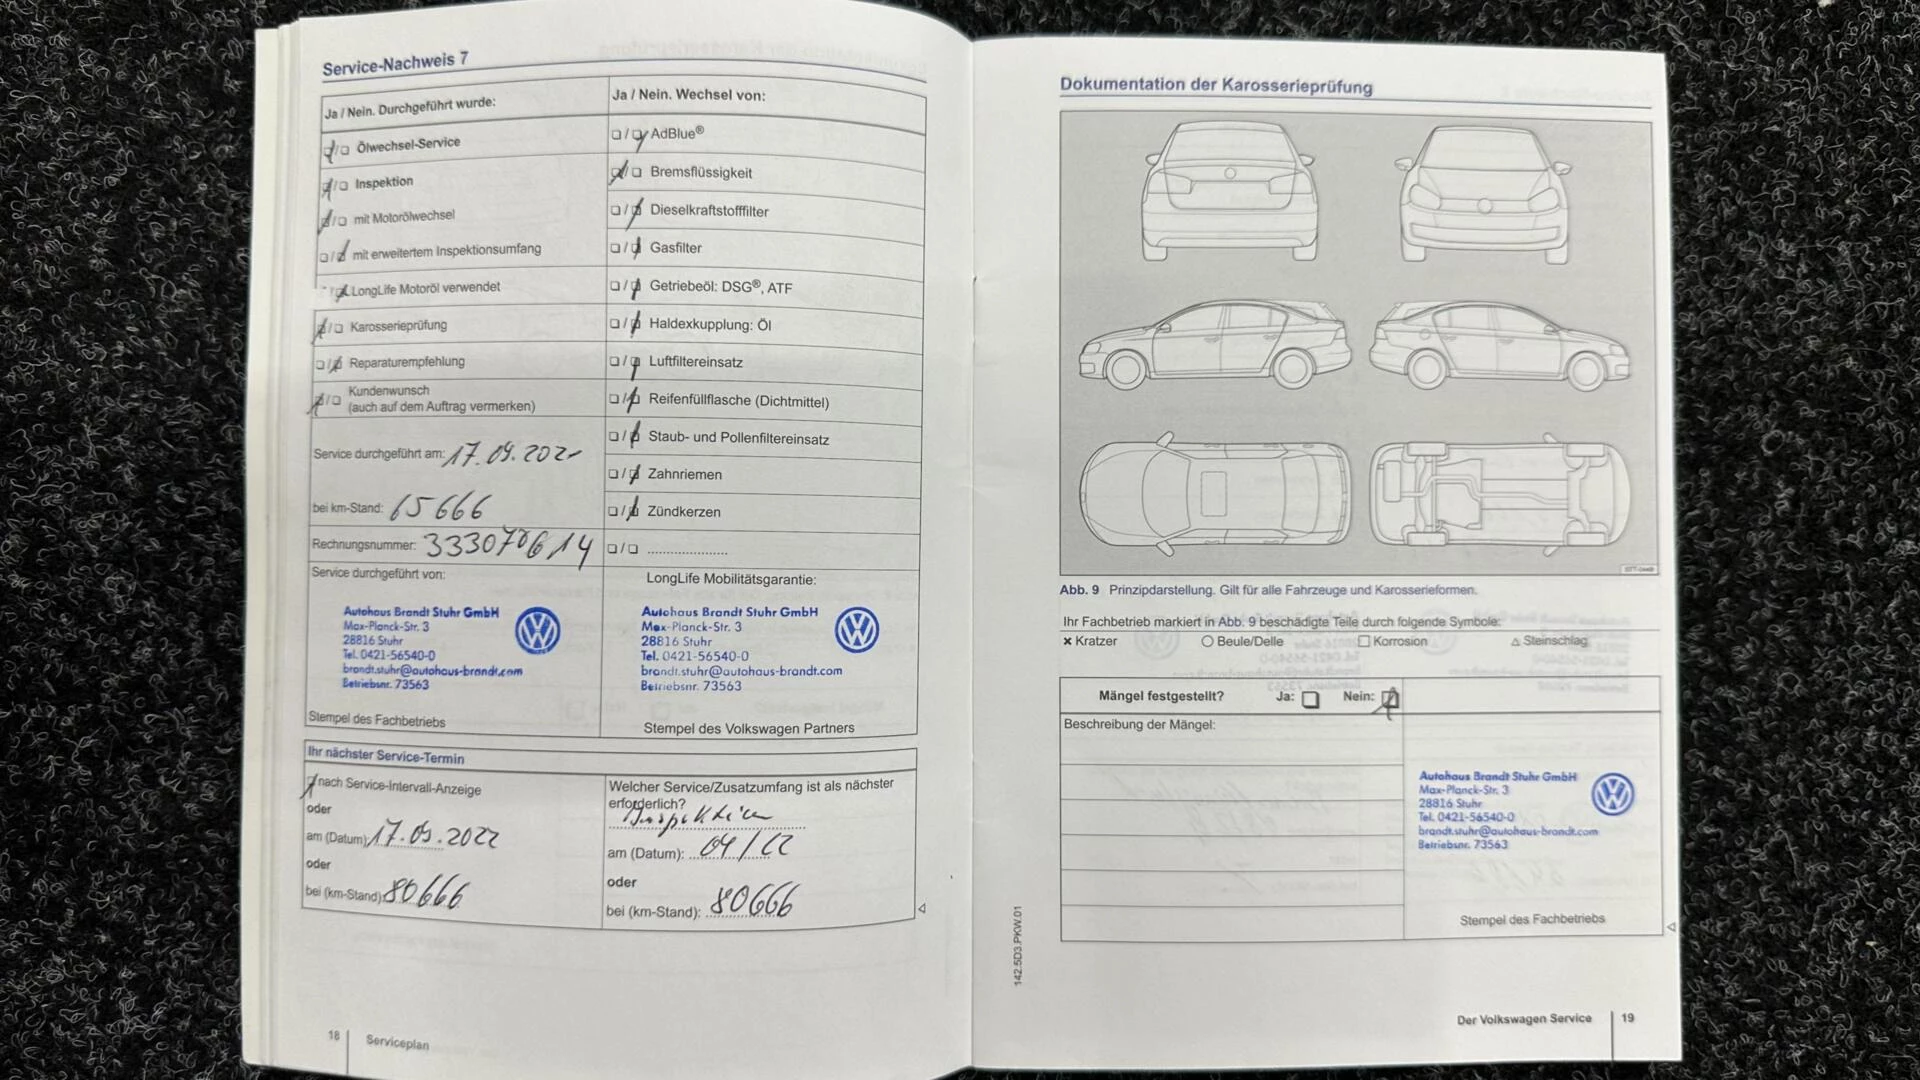 Service-Nachweis 7
Ja / Nein. Durchgeführt wurde:
Ölwechsel-Service
Inspektion
mit Motorölwechsel
mit erweitertem Inspektionsumfang
LongLife Motoröl verwendet
Karosserieprüfung
Reparaturempfehlung
Kundenwunsch
(auch auf dem Auftrag vermerken)
Service durchgeführt am: 17.09.202
bei km-Stand: 65666
Rechnungsnummer: 333070614
Ja / Nein. Wechsel von:
AdBlue®
Bremsflüssigkeit
Dieselkraftstofffilter
Gasfilter
Getriebeöl: DSG®, ATF
Haldexkupplung: Öl
Luftfiltereinsatz
Reifenfüllflasche (Dichtmittel)
Staub- und Pollenfiltereinsatz
Zahnriemen
Zündkerzen
Service durchgeführt von:
Autohaus Brandt Stuhr GmbH
Max-Planck-Str. 3
28816 Stuhr
Tel. 0421-56540-0
brandt.stuhr@autohaus-brandt.com
Betriebsnr. 73563
Stempel des Fachbetriebs
LongLife Mobilitätsgarantie:
Autohaus Brandt Stuhr GmbH
Max-Planck-Str. 3
28816 Stuhr
Tel. 0421-56540-0
brandt.stuhr@autohaus-brandt.com
Betriebsnr. 73563
Stempel des Volkswagen Partners
Ihr nächster Service-Termin
nach Service-Intervall-Anzeige
oder
am (Datum): 17.09.2022
oder
bei (km-Stand): 80666
Welcher Service/Zusatzumfang ist als nächster
erforderlich?
Inspektion
am (Datum): 09/22
oder
bei (km-Stand): 80666
18
Serviceplan
Dokumentation der Karosserieprüfung
Abb. 9 Prinzipdarstellung. Gilt für alle Fahrzeuge und Karosserieformen.
Ihr Fachbetrieb markiert in Abb. 9 beschädigte Teile durch folgende Symbole:
× Kratzer ○ Beule/Delle □ Korrosion △ Steinschlag
Mängel festgestellt? Ja: Nein:
Beschreibung der Mängel:
Autohaus Brandt Stuhr GmbH
Max-Planck-Str. 3
28816 Stuhr
Tel. 0421-56540-0
brandt.stuhr@autohaus-brandt.com
Betriebsnr. 73563
Stempel des Fachbetriebs
142.5D3.PKW.01
Der Volkswagen Service 19